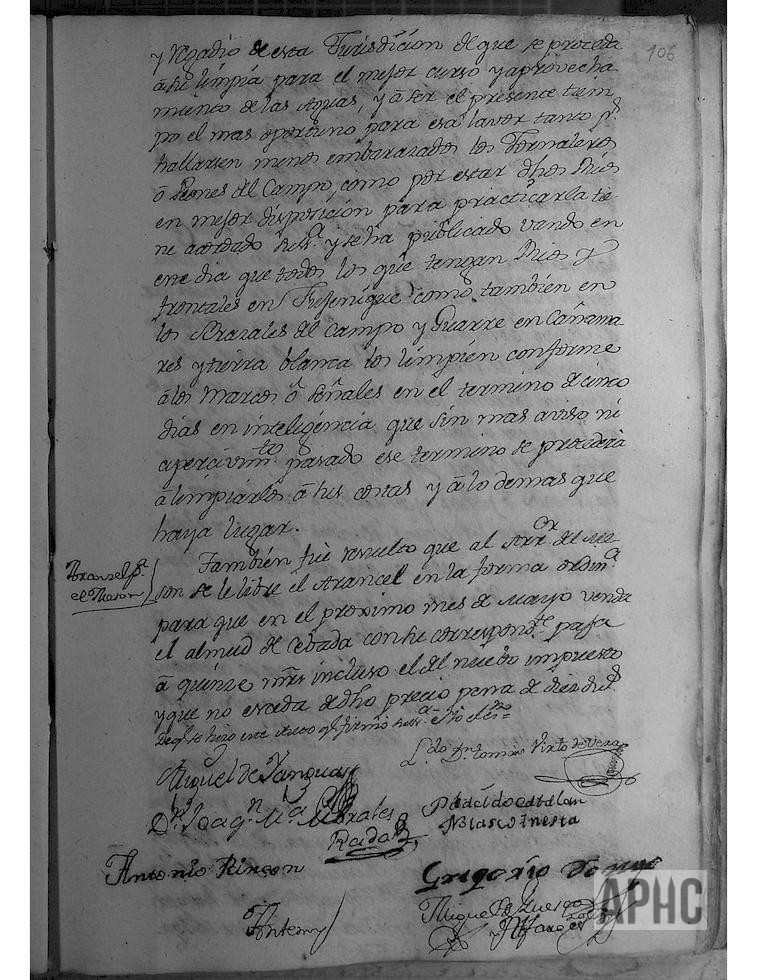 106
y Regadio de esta Jurisdicion de que se proceda
a su limpia para el mejor curso y aprovecha
miento de las Aguas, y a ser el presente tiem
po el mas oportuno para esa lavor tanto pr.
hallarsen menos embarazados los Jornaleros
o Peones del Campo, como por estar dhos Rios
en mejor disposicion para practicarla tie
ne acordado su sa. y se ha publicado vando en
este dia que todos los que tengan Rios y
frontales en como tambien en
los Brazales del Campo y Guarre en Cañama
res y tierra blanca los limpien conforme
a los Marcos o señales en el termino de cinco
dias en inteligencia que sin mas aviso ni
apercivimto. pasado ese termino se procederà
a limpiarlos a sus costas y a lo demas que
haya lugar.
Aranzel pa.
el Meson
Tambien fue resuelto que al Arror. del Me
son se le libre el Arancel en la forma ordina.
para que en el proximo mes de Mayo venda
el almud de Cebada con su correspondte. paja
a quinze mrs incluso el del nuebo impuesto
y que no exceda de dho precio pena de diez dus.
De qe. se hizo este Auto qe. firmò su sa.
Ldo. Dn. Tomas Virto de Vera
Miguel de Yanguas
Dn. Joaqn. Ma. Morales
Rada
Plácido Catalan
Blasco Inesta
Antonio Rincon
Gregorio
Antemy
Miguel de Luesga
y Alfaro
APHC